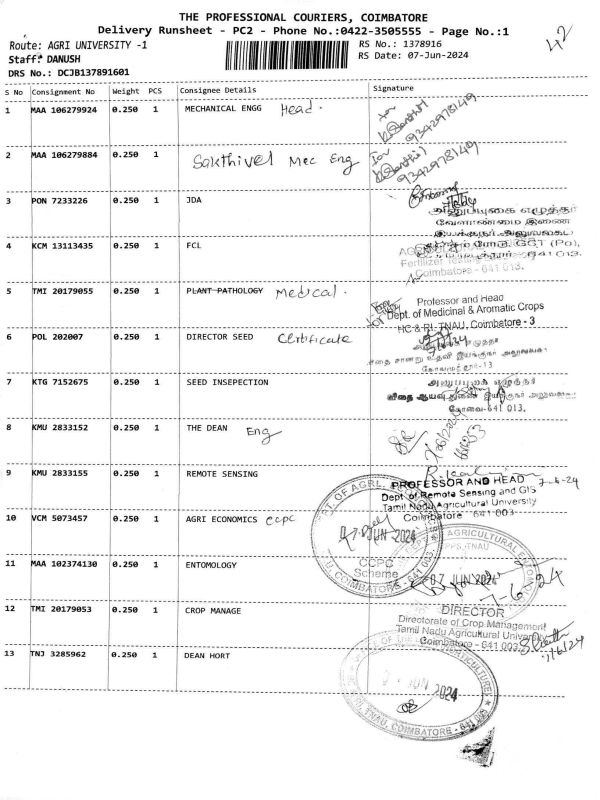 THE PROFESSIONAL COURIERS, COIMBATORE
Delivery Runsheet - PC2 - Phone No.:0422-3505555 - Page No.:1
Route: AGRI UNIVERSITY -1
RS No.: 1378916
42
Staff: DANUSH
RS Date: 07-Jun-2024
DRS No.: DCJB137891601
S No Consignment No Weight PCS Consignee Details Signature
1 MAA 106279924 0.250 1 MECHANICAL ENGG Head.
9342978149
2 MAA 106279884 0.250 1 Sakthivel Mec Eng
9342978149
3 PON 7233226 0.250 1 JDA
அலுவலக எழுத்தர்
வேளாண்மை இணை
இயக்குநர் அலுவலகம்
4 KCM 13113435 0.250 1 FCL
Fertilizer Testing
Coimbatore - 641 013.
5 TMI 20179055 0.250 1 PLANT PATHOLOGY Medical.
Professor and Head
Dept. of Medicinal & Aromatic Crops
HC & RI, TNAU, Coimbatore - 3
6 POL 202007 0.250 1 DIRECTOR SEED Certificate
7 KTG 7152675 0.250 1 SEED INSEPECTION
கோவை-641 013.
8 KMU 2833152 0.250 1 THE DEAN Eng
9 KMU 2833155 0.250 1 REMOTE SENSING
PROFESSOR AND HEAD 7-6-24
Dept. of Remote Sensing and GIS
Tamil Nadu Agricultural University
Coimbatore - 641 003
10 VCM 5073457 0.250 1 AGRI ECONOMICS CCPC
07 JUN 2024
CCPC
Scheme
COIMBATORE - 641 003.
11 MAA 102374130 0.250 1 ENTOMOLOGY
07 JUN 2024
7-6-24
12 TMI 20179053 0.250 1 CROP MANAGE
DIRECTOR
Directorate of Crop Management
Tamil Nadu Agricultural University
Coimbatore - 641 003.
7/6/24
13 TNJ 3285962 0.250 1 DEAN HORT
JUN 2024
TNAU, COIMBATORE - 641 003.